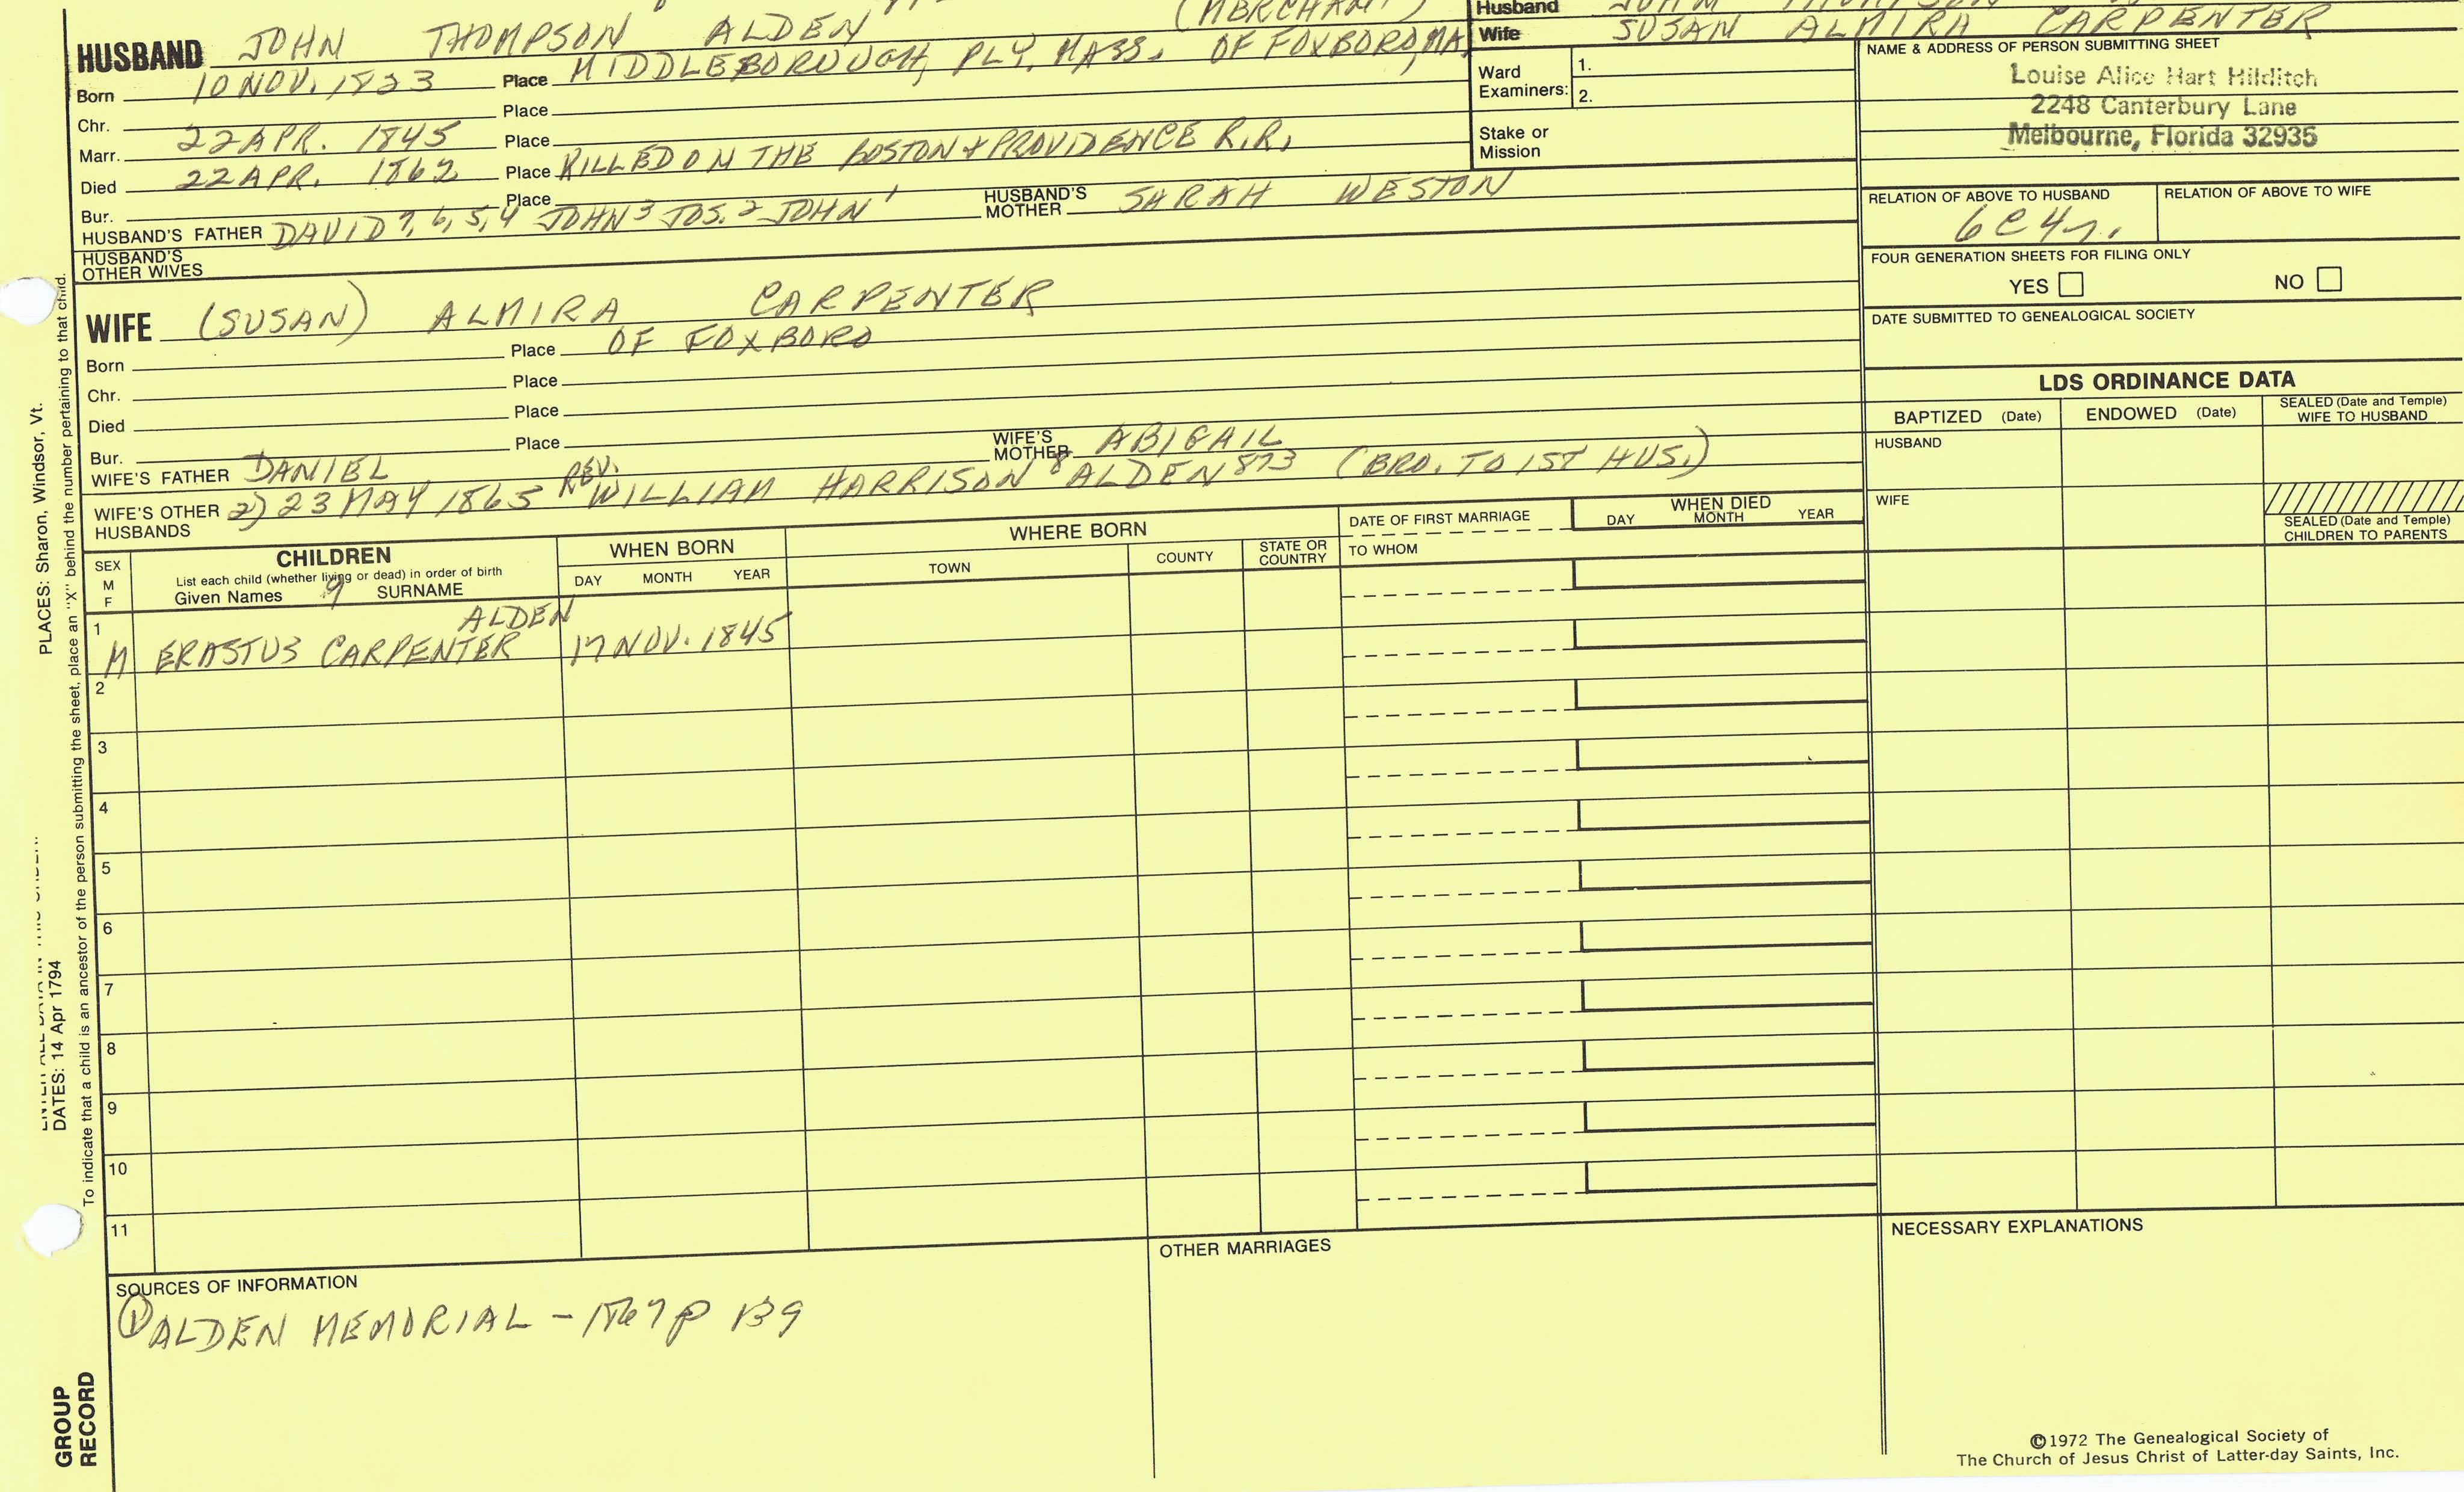 (MERCHANT)
Husband
HUSBAND JOHN THOMPSON ALDEN
Wife SUSAN ALMIRA CARPENTER
Born 10 NOV. 1823 Place MIDDLEBOROUGH, PLY, MASS. OF FOXBORO, MA
Chr. Place
Marr. 22 APR. 1845 Place
Died 22 APR. 1862 Place KILLED ON THE BOSTON & PROVIDENCE R.R.
Bur. Place
HUSBAND'S FATHER DAVID 7, 6, 5, 4 JOHN 3 JOS. 2 JOHN 1 HUSBAND'S MOTHER SARAH WESTON
HUSBAND'S OTHER WIVES
Ward Examiners: 1.
2.
Stake or Mission
NAME & ADDRESS OF PERSON SUBMITTING SHEET
Louise Alice Hart Hilditch
2248 Canterbury Lane
Melbourne, Florida 32935
RELATION OF ABOVE TO HUSBAND RELATION OF ABOVE TO WIFE
6C4r.
FOUR GENERATION SHEETS FOR FILING ONLY
YES NO
DATE SUBMITTED TO GENEALOGICAL SOCIETY
WIFE (SUSAN) ALMIRA CARPENTER
Born Place OF FOXBORO
Chr. Place
Died Place
Bur. Place
WIFE'S FATHER DANIEL WIFE'S MOTHER ABIGAIL
WIFE'S OTHER HUSBANDS 2) 23 MAY 1865 REV. WILLIAM HARRISON 8 ALDEN 873 (BRO. TO 1ST HUS.)
LDS ORDINANCE DATA
BAPTIZED (Date) ENDOWED (Date) SEALED (Date and Temple) WIFE TO HUSBAND
HUSBAND
WIFE
SEALED (Date and Temple) CHILDREN TO PARENTS
SEX M F
CHILDREN
List each child (whether living or dead) in order of birth
Given Names 9 SURNAME
WHEN BORN
DAY MONTH YEAR
WHERE BORN
TOWN COUNTY STATE OR COUNTRY
DATE OF FIRST MARRIAGE
TO WHOM
WHEN DIED
DAY MONTH YEAR
ALDEN
1 M ERASTUS CARPENTER 17 NOV. 1845
2
3
4
5
6
7
8
9
10
11
SOURCES OF INFORMATION
1 ALDEN MEMORIAL - 1867 p 139
OTHER MARRIAGES
NECESSARY EXPLANATIONS
©1972 The Genealogical Society of
The Church of Jesus Christ of Latter-day Saints, Inc.
PLACES: Sharon, Windsor, Vt.
DATES: 14 Apr 1794
To indicate that a child is an ancestor of the person submitting the sheet, place an "X" behind the number pertaining to that child.
GROUP
RECORD